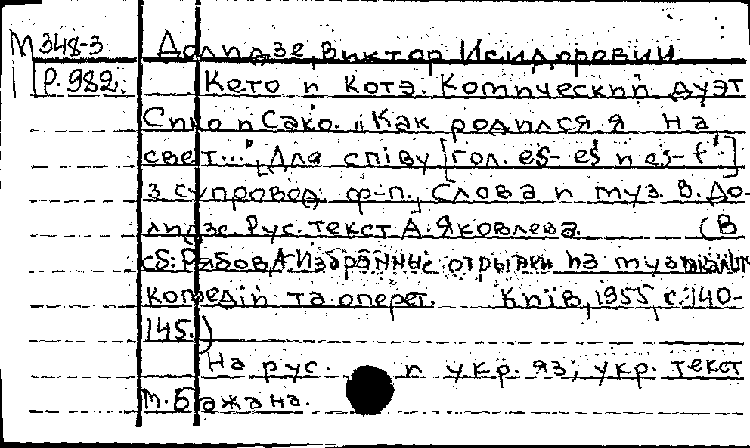 М 348-3 Долидзе, Виктор Исидорович
Р. 982. Кето и Котэ. Комический дуэт
Сико и Сако. „Как родился я на
свет..." Для співу [гол. es- es' и es- f']
з супровод. ф-п., Слова и муз. В. До-
лидзе. Рус. текст А. Яковлева. (В
сб: Рябов А. Избранные отрывки из
комедій та оперет. Київ, 1955, с. 140-
145.)
На рус. и укр. яз; укр. текст
М. Бажана.